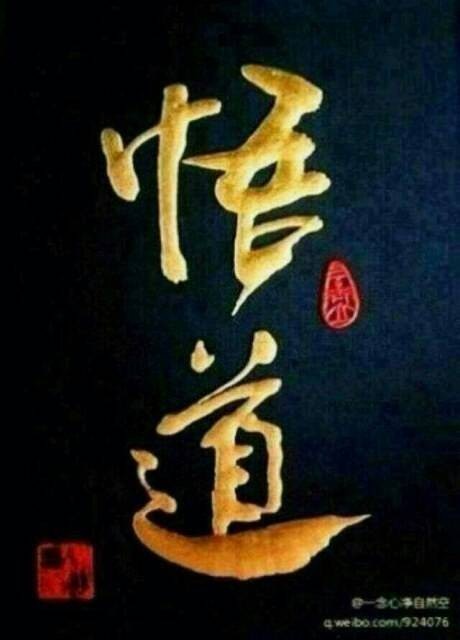 悟
道
@一念心净自然空
q.weibo.com/924076